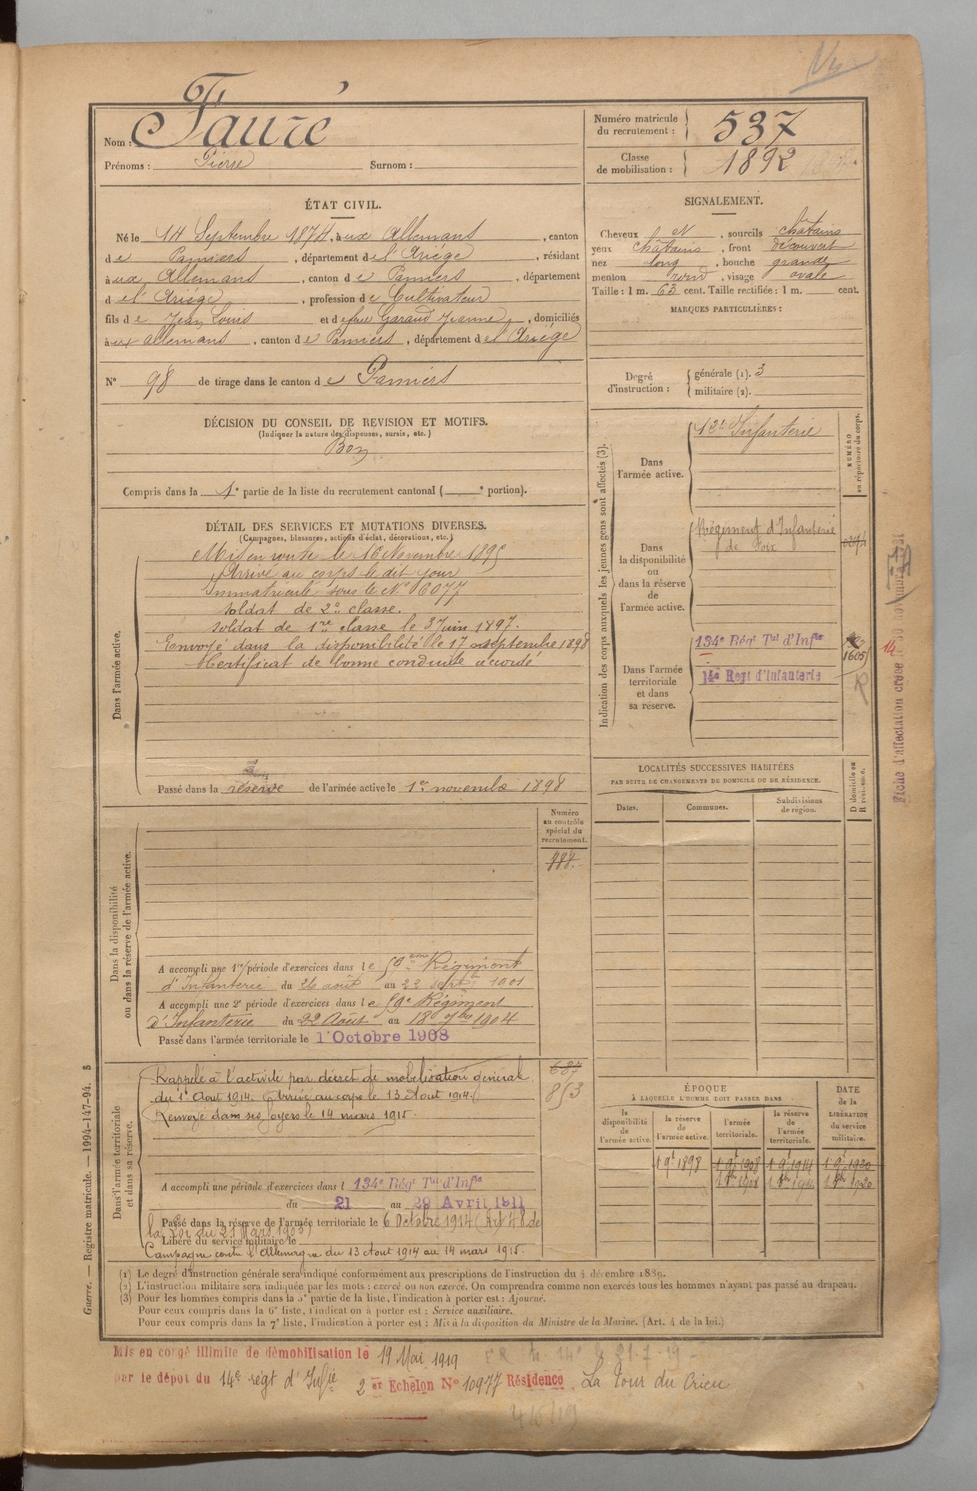 Nom : Fauré
Prénoms : Pierre Surnom :
Numéro matricule du recrutement : 537
Classe de mobilisation : 1892
ÉTAT CIVIL.
Né le 14 Septembre 1874, à ux Allemans, canton
de Pamiers, département de l'Ariège, résidant
à ux Allemans, canton de Pamiers, département
de l'Ariège, profession de Cultivateur
fils de Jean Louis et de feue Garaud Jeanne, domiciliés
à ux allemans, canton de Pamiers, département de l'Ariège
N° 98 de tirage dans le canton de Pamiers
SIGNALEMENT.
Cheveux N, sourcils châtains
yeux châtains, front découvert
nez long, bouche grande
menton rond, visage ovale
Taille : 1 m. 63 cent. Taille rectifiée : 1 m. cent.
MARQUES PARTICULIÈRES :
Degré d'instruction : générale (1). 3
militaire (2).
DÉCISION DU CONSEIL DE REVISION ET MOTIFS.
(Indiquer la nature des dispenses, sursis, etc.)
Bon
Compris dans la 1e partie de la liste du recrutement cantonal ( e portion).
DÉTAIL DES SERVICES ET MUTATIONS DIVERSES.
(Campagnes, blessures, actions d'éclat, décorations, etc.)
Dans l'armée active.
Mis en route le 16 Novembre 1895
Arrivé au corps le dit jour
Immatriculé sous le N° 6077
soldat de 2e classe.
soldat de 1re classe le 3 juin 1897.
Envoyé dans la disponibilité le 17 septembre 1898
Certificat de bonne conduite accordé
Passé dans la réserve de l'armée active le 1er novembre 1898
Indication des corps auxquels les jeunes gens sont affectés (3).
NUMÉRO au répertoire du corps.
Dans l'armée active.
Infanterie
Dans la disponibilité ou dans la réserve de l'armée active.
Régiment d'Infanterie
de Foix
Dans l'armée territoriale et dans sa réserve.
134e Régt Tal d'Infie
1605
14e Regt d'Infanterie
Fiche d'affectation créée
LOCALITÉS SUCCESSIVES HABITÉES
PAR SUITE DE CHANGEMENTS DE DOMICILE OU DE RÉSIDENCE.
Dates. Communes. Subdivisions de région. D domicile ou R résidence.
Numéro au contrôle spécial du recrutement.
Dans la disponibilité ou dans la réserve de l'armée active.
A accompli une 1re période d'exercices dans le 59eme Régiment
d'Infanterie du 26 août au 22 sept 1901
A accompli une 2e période d'exercices dans le 59e Régiment
d'Infanterie du 22 Août au 18 7bre 1904
Passé dans l'armée territoriale le 1 Octobre 1908
Dans l'armée territoriale et dans sa réserve.
687
853
Rappelé à l'activité par décret de mobilisation général
du 1er Aout 1914. Arrivé au corps le 13 Aout 1914.
Renvoyé dans ses foyers le 14 mars 1915.
A accompli une période d'exercices dans l 134e Régt Tal d'Infie
du 21 au 29 Avril 1911
Passé dans la réserve de l'armée territoriale le 6 Octobre 1914 (Art 48 de
la Loi du 21 Mars 1905)
Libéré du service militaire le
Campagne contre l'Allemagne du 13 Aout 1914 au 14 mars 1915.
ÉPOQUE
À LAQUELLE L'HOMME DOIT PASSER DANS
DATE de la LIBÉRATION du service militaire.
la disponibilité de l'armée active. la réserve de l'armée active. l'armée territoriale. la réserve de l'armée territoriale.
Guerre. — Registre matricule. — 1994-147-94.
(1) Le degré d'instruction générale sera indiqué conformément aux prescriptions de l'instruction du 4 décembre 1889.
(2) L'instruction militaire sera indiquée par les mots : exercé ou non exercé. On comprendra comme non exercés tous les hommes n'ayant pas passé au drapeau.
(3) Pour les hommes compris dans la 5e partie de la liste, l'indication à porter est : Ajourné.
Pour ceux compris dans la 6e liste, l'indication à porter est : Service auxiliaire.
Pour ceux compris dans la 7e liste, l'indication à porter est : Mis à la disposition du Ministre de la Marine. (Art. 4 de la loi.)
Mis en congé illimité de démobilisation le 19 Mai 1919
par le dépot du 14e régt d'Infie 2er Echelon N° 10977 Résidence La Tour du Crieu